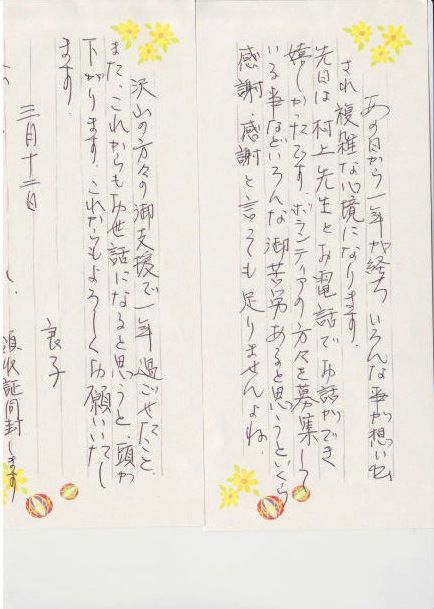 あの日から一年が経ち いろんな事が想い出
され複雑な心境になります。
先日は村上先生とお電話でお話ができ
嬉しかったです。ボランティアの方々を募集して
いる事などいろんな御苦労あると思いうといくら
感謝、感謝と言っても足りませんよね。
沢山の方々の御支援で一年過ごせたこと、
また、これからもお世話になると思うと、頭が
下がります。これからもよろしくお願いいたし
ます。
三月十三日
良子
領収証同封します